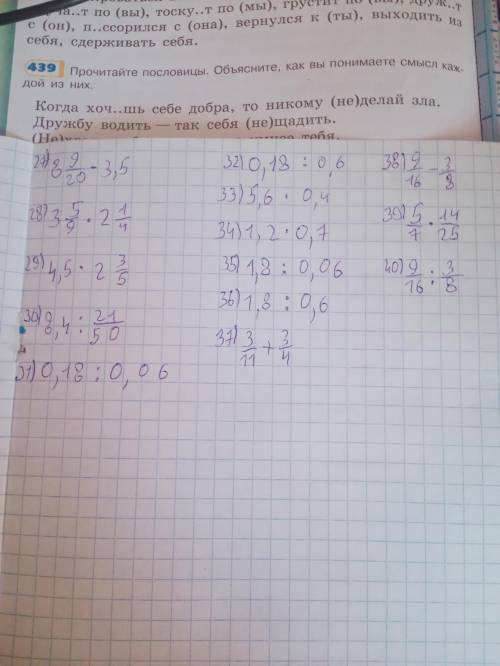 с (он), п..ссорился с (она), вернулся к (ты), выходить из
себя, сдерживать себя.
439 Прочитайте пословицы. Объясните, как вы понимаете смысл каж-
дой из них.
Когда хоч..шь себе добра, то никому (не)делай зла.
Дружбу водить — так себя (не)щадить.
27) 8 9/20 - 3,5
28) 3 5/9 · 2 1/4
29) 4,5 · 2 3/5
30) 8,4 : 21/50
31) 0,18 : 0,06
32) 0,18 : 0,6
33) 5,6 · 0,4
34) 1,2 · 0,7
35) 1,8 : 0,06
36) 1,8 : 0,6
37) 3/11 + 3/4
38) 9/16 - 3/8
39) 5/7 · 14/25
40) 9/16 : 3/8